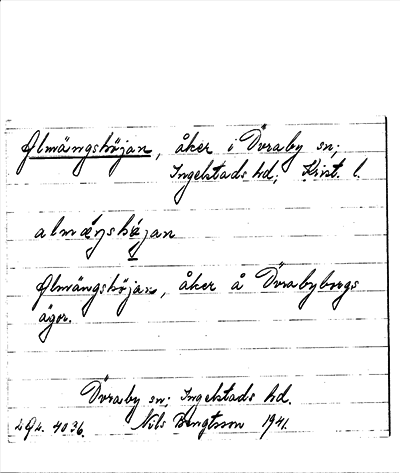 Almängshöjan, åker i Övraby sn;
Ingelstads hd; Krist. l.
almäŋshøjan
Almängshöjan, åker å Övrabyborgs
ägor.
Övraby sn; Ingelstads hd.
Nils Bengtsson 1941.